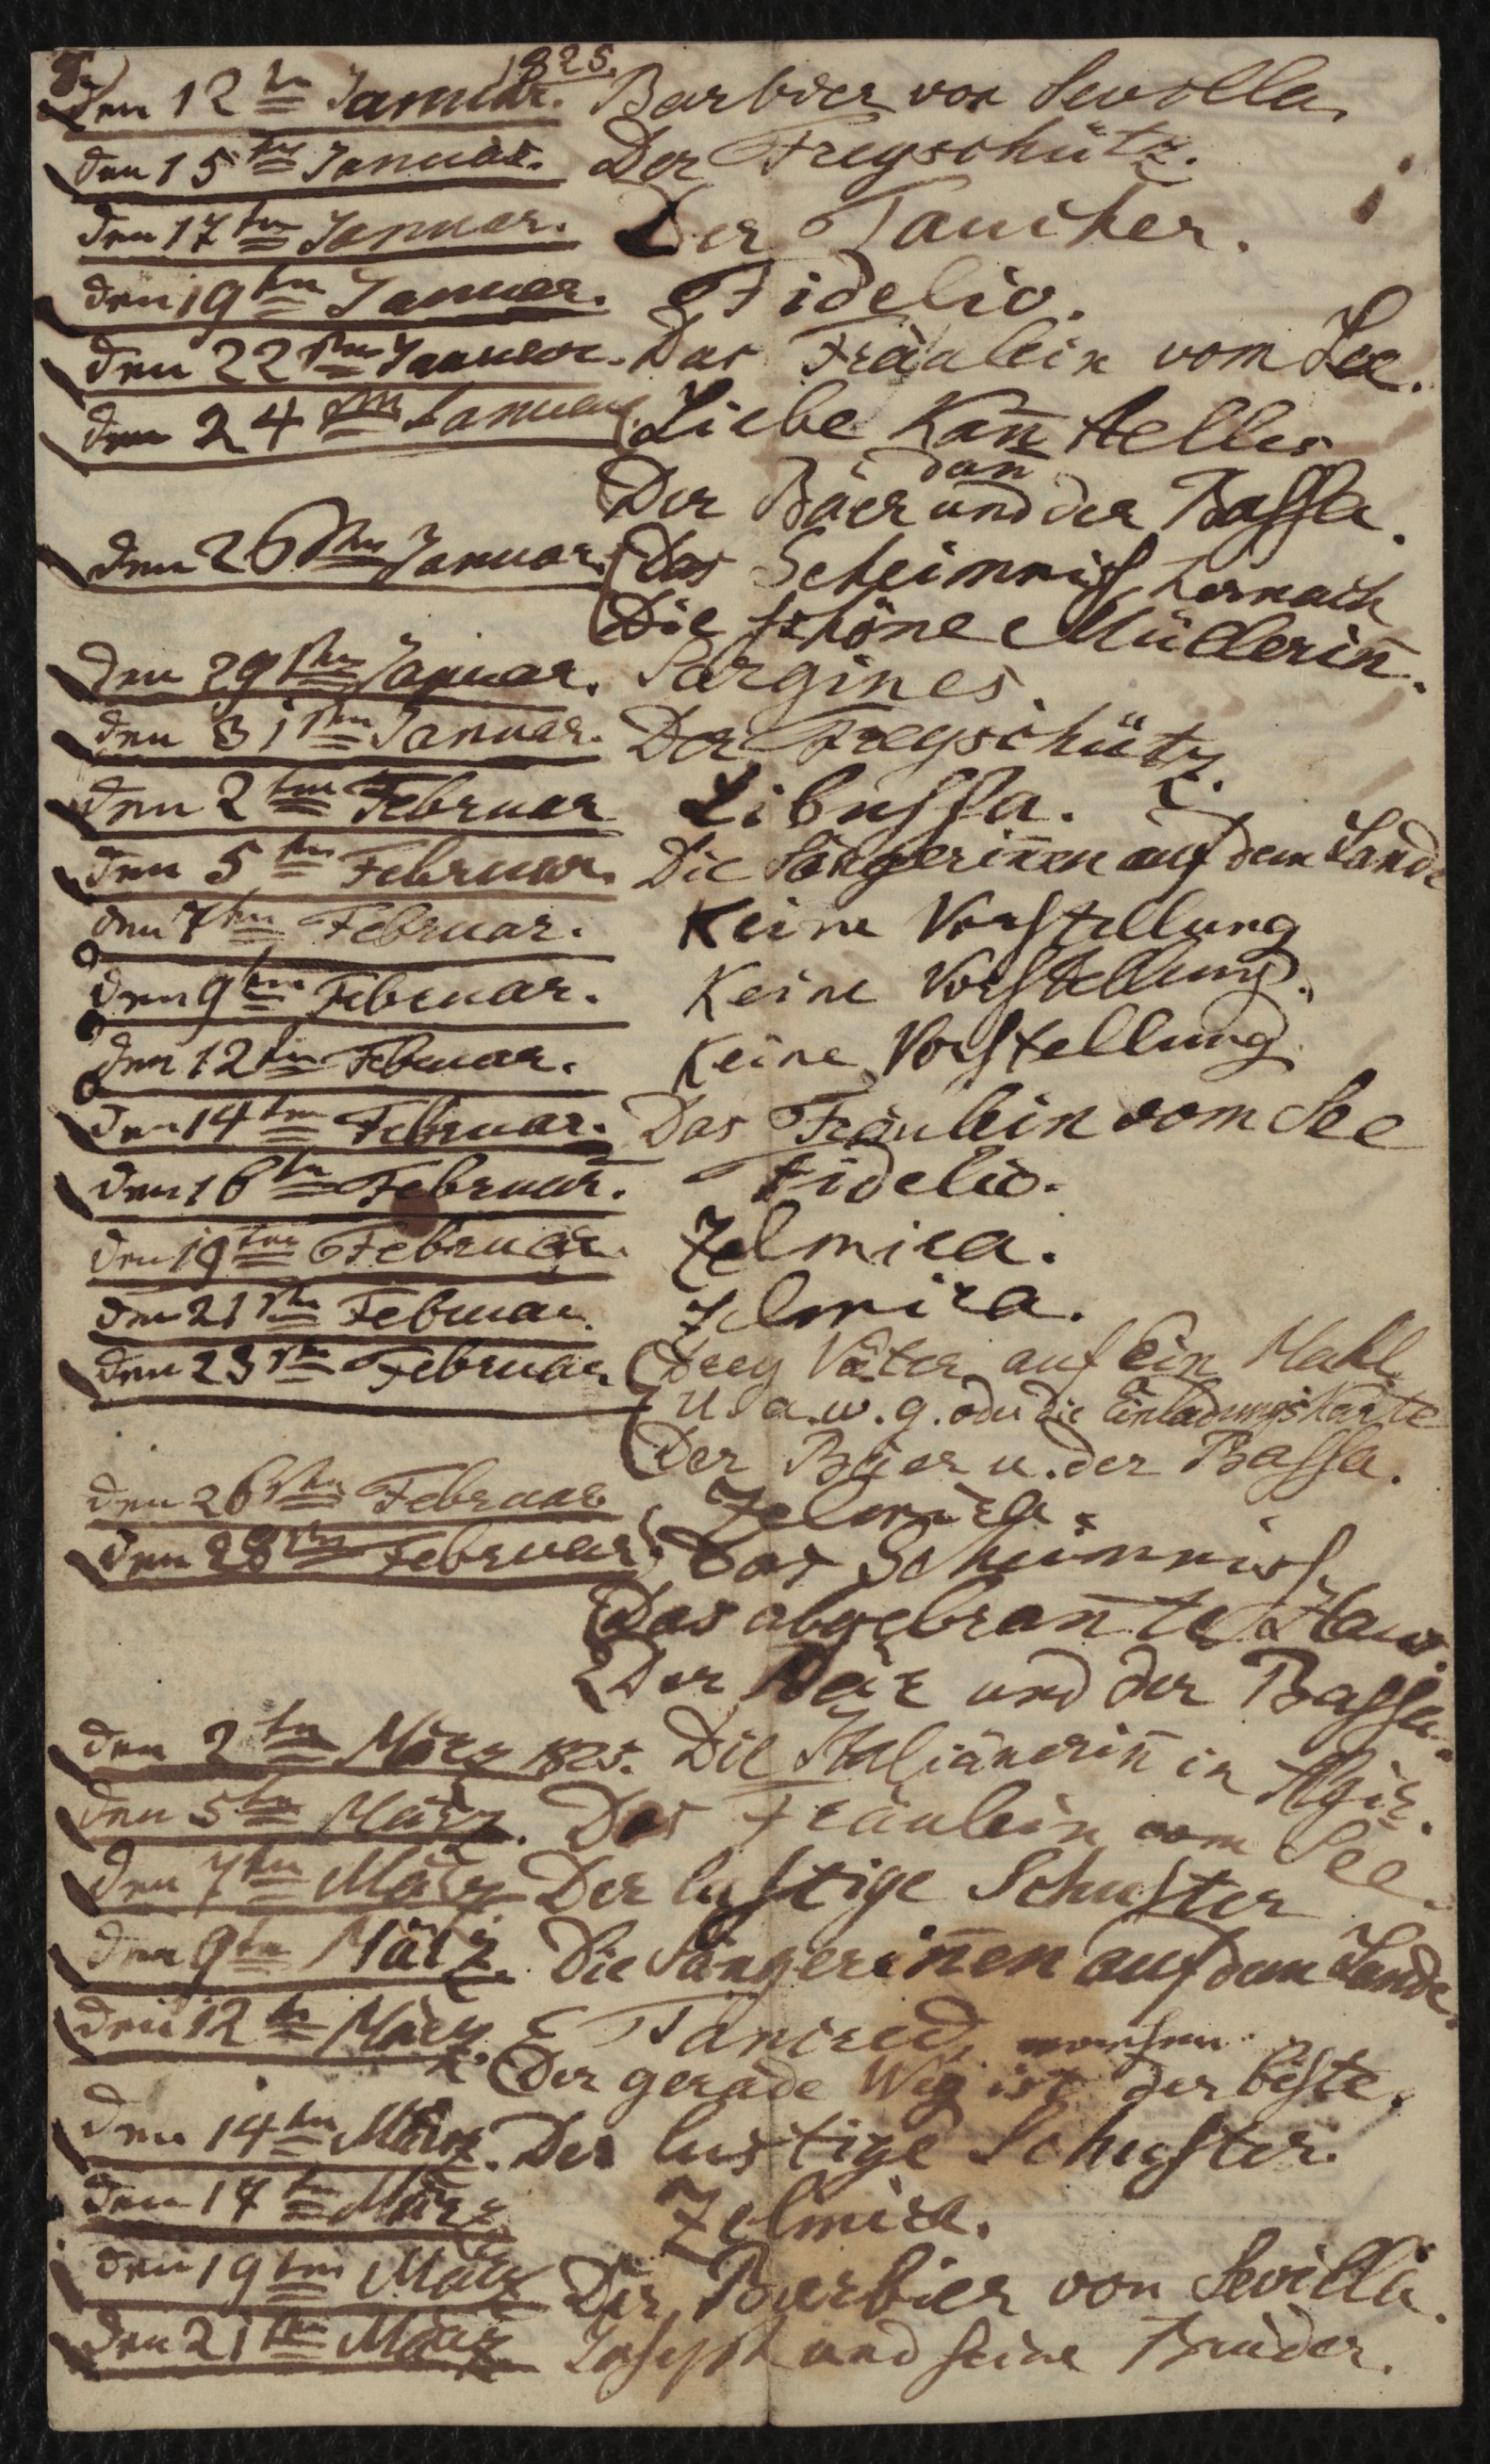 1825.
den 12ten Januar. Barbier von Sevilla
den 15ten Januar. Der Freyschütz.
den 17ten Januar. Der Taucher.
den 19ten Januar. Fidelio.
den 22sten Januar. Das Fräulein vom See.
den 24sten Januar. Liebe kan̄ Alles
dan̄
Der Bäer und der Bassa.
den 26sten Januar. Das Geheimniß, hernach
Die schöne Müllerin̄.
den 29sten Januar. Sargines.
den 31sten Januar. Der Freyschütz.
den 2ten Februar Libussa.
den 5ten Februar. Die Sängerin̄en auf dem Lande
den 7ten Februar. Keine Vorstellung
den 9ten Februar. Keine Vorstellung.
den 12ten Februar. Keine Vorstellung
den 14ten Februar. Das Fräulein vom See
den 16ten Februar. Fidelio.
den 19ten Februar. Zelmira.
den 21sten Februar. Zelmira.
den 23sten Februar Drey Väter auf Ein Mahl,
U. a. w. g. oder die Einladungskarte
Der Bäer u. der Bassa.
den 26sten Februar Zelmira.
den 28sten Februar. Das Geheimniß.
Das abgebran̄te Haus.
Der Bär und der Bassa.
den 2ten März 1825. Die Italiänerin̄ in Algir.
den 5ten März. Das Fräulein vom See.
den 7ten März Der lustige Schuster
den 9ten März. Die Sängerin̄en auf dem Lande.
den 12ten März. Tancred,
Der gerade Weg ist der beste.
den 14ten März. Der lustige Schuster.
den 17ten März Zelmira.
den 19ten März Der Barbier von Sevilla.
den 21sten März Joseph und seine Brüder.